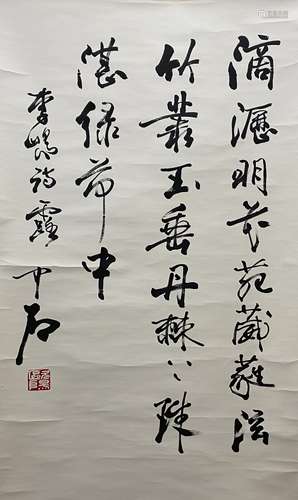 滴瀝明花苑葳蕤泫
竹叢玉垂丹棘上珠
湛綠荷中
李嶠詩露 中石